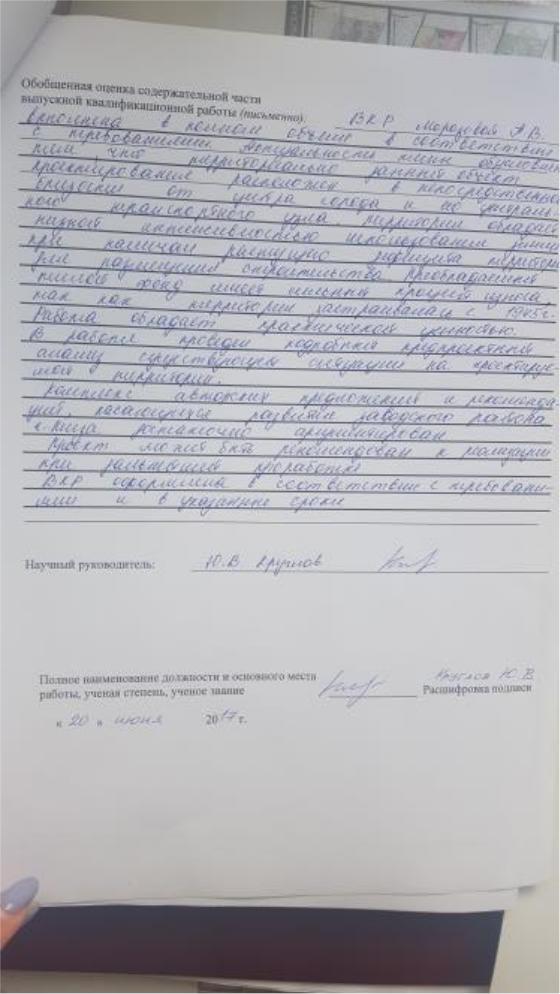 Обобщенная оценка содержательной части
выпускной квалификационной работы (письменно). ВКР Морозовой А.В.
выполнена в полном объеме в соответствии
с требованиями. Актуальность темы обусловлен
тем, что территориально данный объект
проектирования расположен в непосредственной
близости от центра города и
транспортного узла. Территории обладает
низкой интенсивностью использования
при наличии
для размещения строительства. Преобладающий
жилой фонд имеет процент износа,
так как территории застраивалась с 1945г.
Работа обладает практической ценностью.
В работе проведен подробный предпроектный
анализ существующей ситуации на проектируе-
мой территории.
Комплекс авторских предложений и рекоменда
ций касающихся развития заводского района
аргументирован
Проект может быть рекомендован к реализации
при дальнейшей проработке
ВКР оформлена в соответствии с требовани-
ями и в указанные сроки
Научный руководитель: Ю.В Круглов
Полное наименование должности и основного места
работы, ученая степень, ученое звание
Круглов Ю.В.
Расшифровка подписи
« 20 » июня 2017 г.